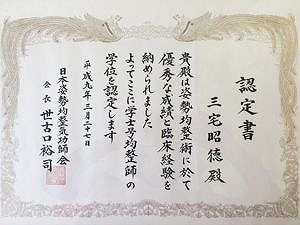 認定書
三宅昭徳 殿
貴殿は姿勢均整術に於て
優秀な成績と臨床経験を
納められました
よってここに学士号均整師の
学位を認定します
平成九年三月二十七日
日本姿勢均整気功師会
会長 世古口裕司